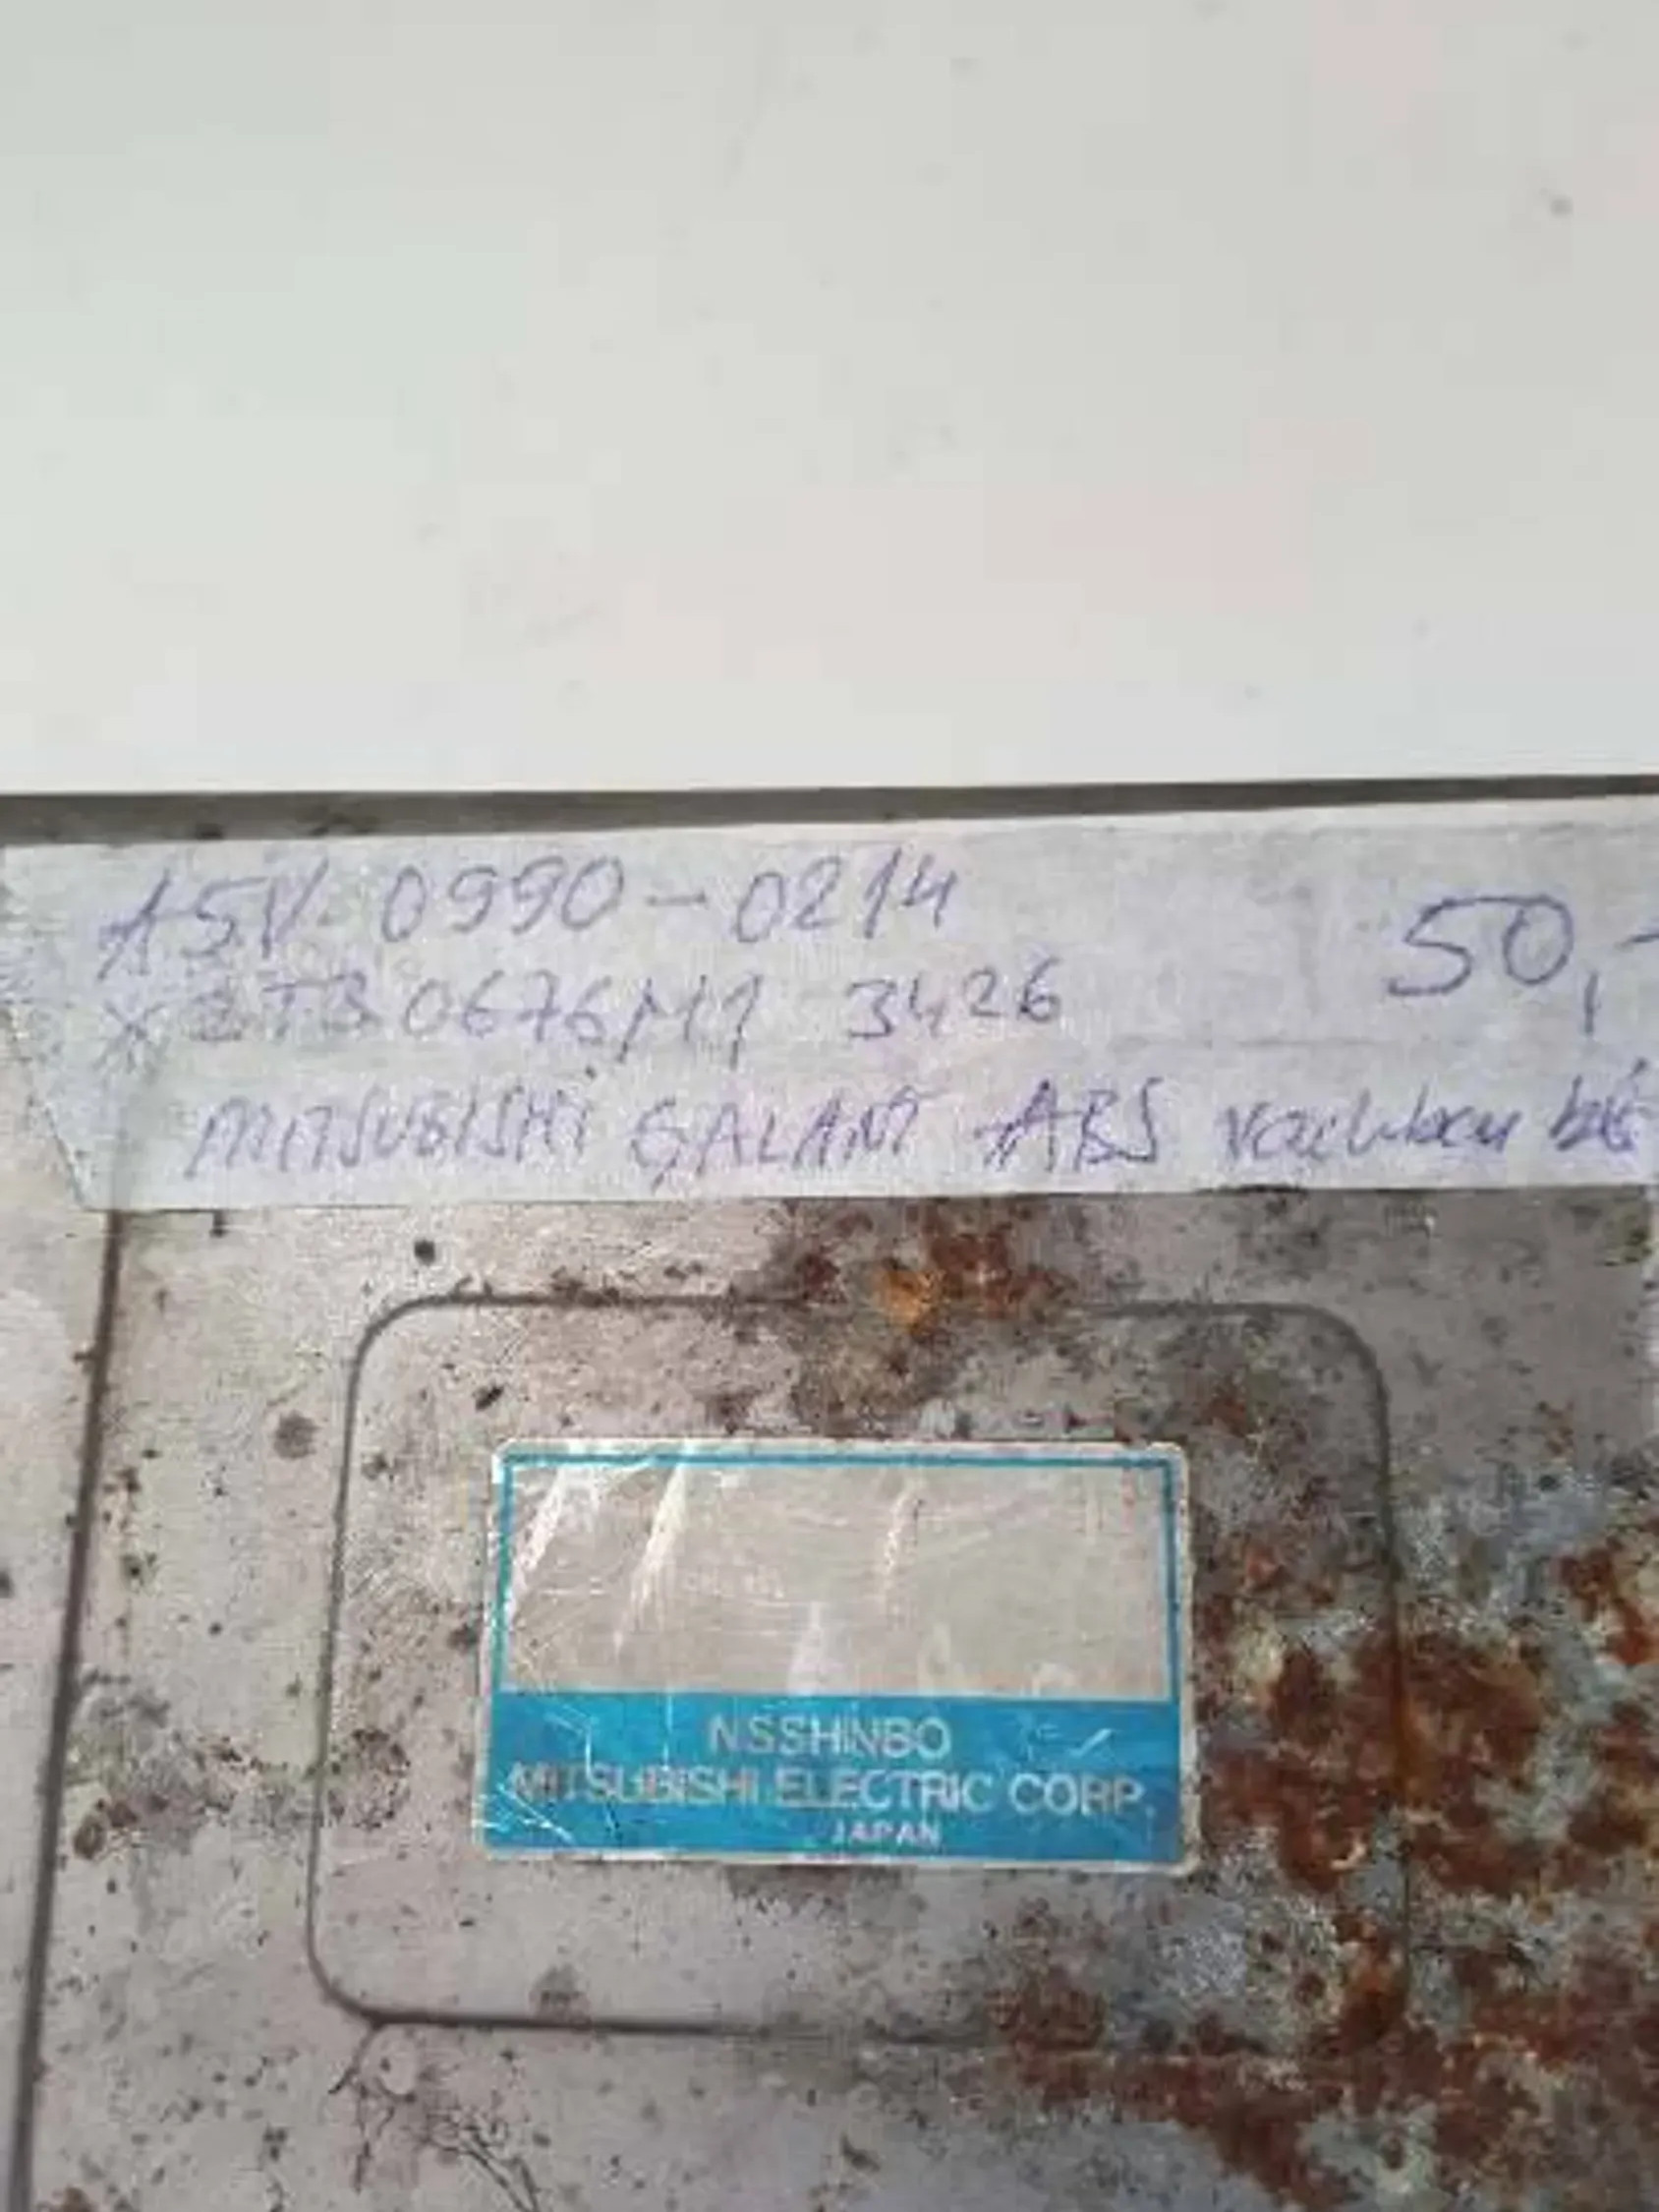 ASV 0990-0214
50,-
X2T30676M1 3426
MITSUBISHI GALANT ABS
NISSHINBO
MITSUBISHI ELECTRIC CORP.
JAPAN